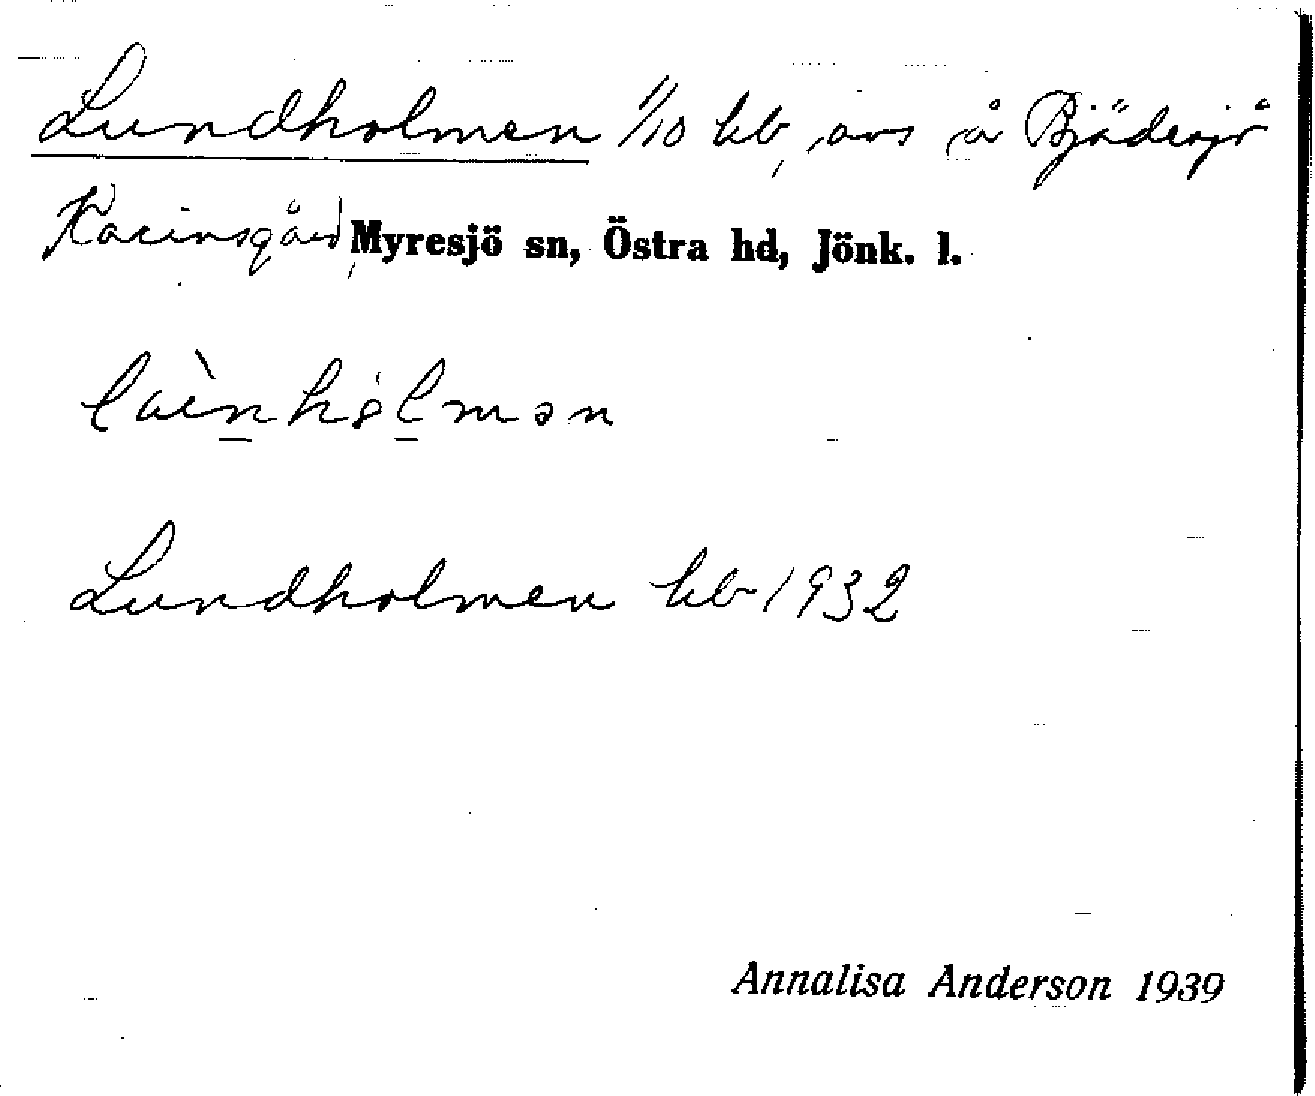 Lundholmen 1/10 hb, avs å Bjädesjö
Karinsgård, Myresjö sn, Östra hd, Jönk. l.
Lundholmen hb 1932
Annalisa Anderson 1939